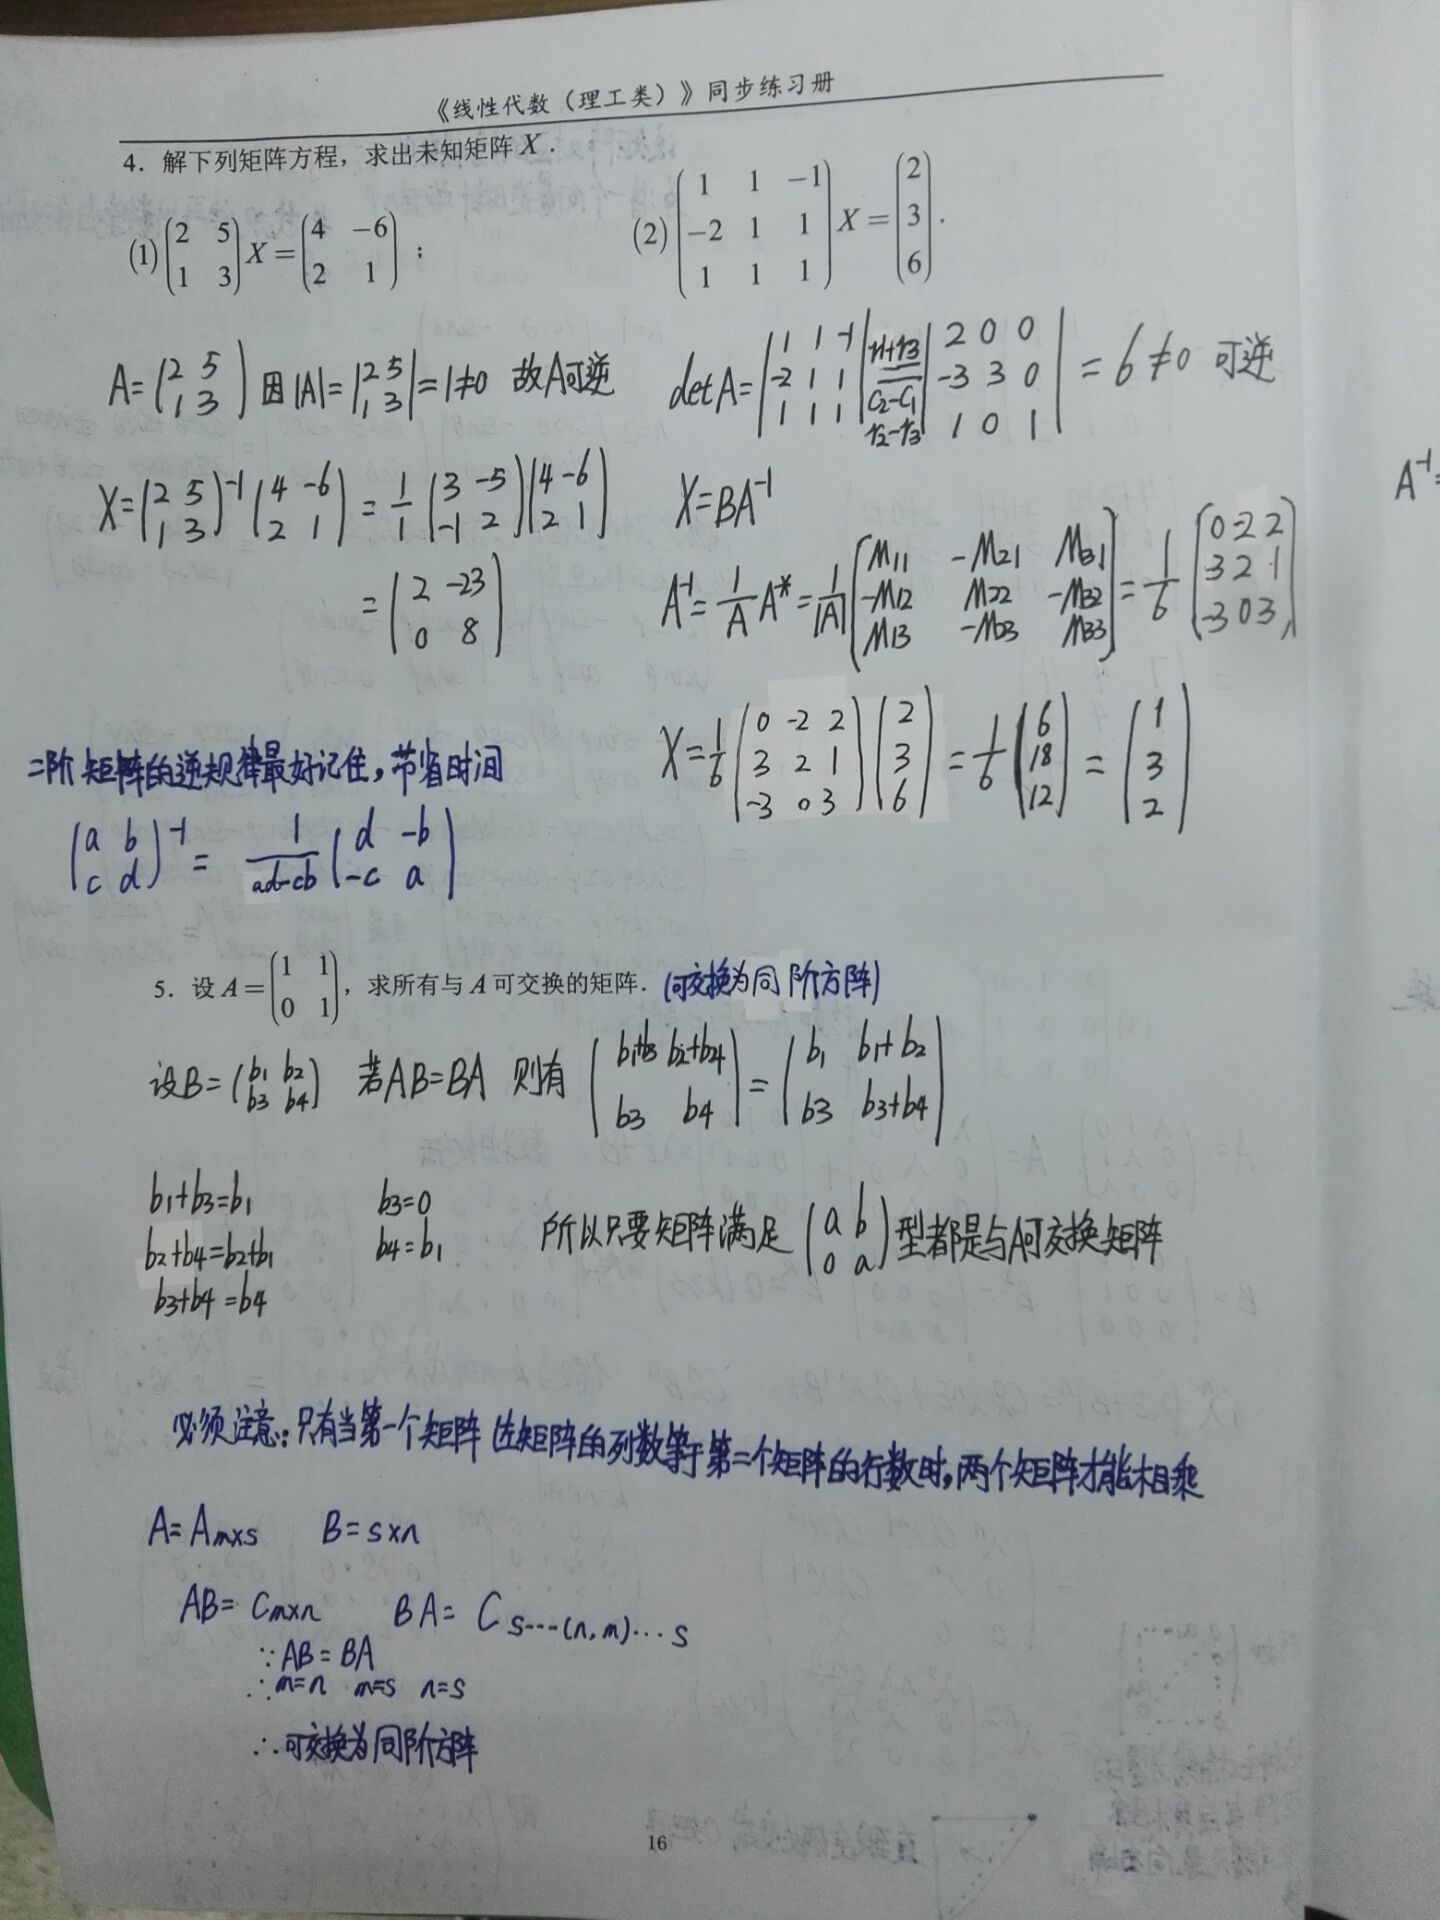 《线性代数（理工类）》同步练习册
4. 解下列矩阵方程，求出未知矩阵 X .
(1) (2 5
1 3) X = (4 -6
2 1) ;
(2) (1 1 -1
-2 1 1
1 1 1) X = (2
3
6) .
A = (2 5
1 3) 因 |A| = |2 5
1 3| = 1 ≠ 0 故A可逆
X = (2 5
1 3)^-1 (4 -6
2 1) = 1/1 (3 -5
-1 2) (4 -6
2 1)
= (2 -23
0 8)
二阶矩阵的逆规律最好记住，节省时间
(a b
c d)^-1 = 1/(ad-cb) (d -b
-c a)
detA = |1 1 -1
-2 1 1
1 1 1| r1+r3 c2-c1 r2-r3 |2 0 0
-3 3 0
1 0 1| = 6 ≠ 0 可逆
X = BA^-1
A^-1 = 1/A A* = 1/|A| (M11 -M21 M31
-M12 M22 -M32
M13 -M23 M33) = 1/6 (0 -2 2
3 2 1
-3 0 3)
X = 1/6 (0 -2 2
3 2 1
-3 0 3) (2
3
6) = 1/6 (6
18
12) = (1
3
2)
A^-1 =
5. 设 A = (1 1
0 1)，求所有与 A 可交换的矩阵. (可交换为同阶方阵)
设B = (b1 b2
b3 b4) 若AB=BA 则有 (b1+b3 b2+b4
b3 b4) = (b1 b1+b2
b3 b3+b4)
b1+b3=b1 b3=0
b2+b4=b2+b1 b4=b1
b3+b4=b4
所以只要矩阵满足 (a b
0 a) 型都是与A可交换矩阵
必须注意：只有当第一个矩阵 左矩阵的列数等于第二个矩阵的行数时，两个矩阵才能相乘
A=Am×s B=s×n
AB=Cm×n BA=Cs---(n,m)...s
∵AB=BA
∴m=n m=s n=s
∴可交换为同阶方阵
16